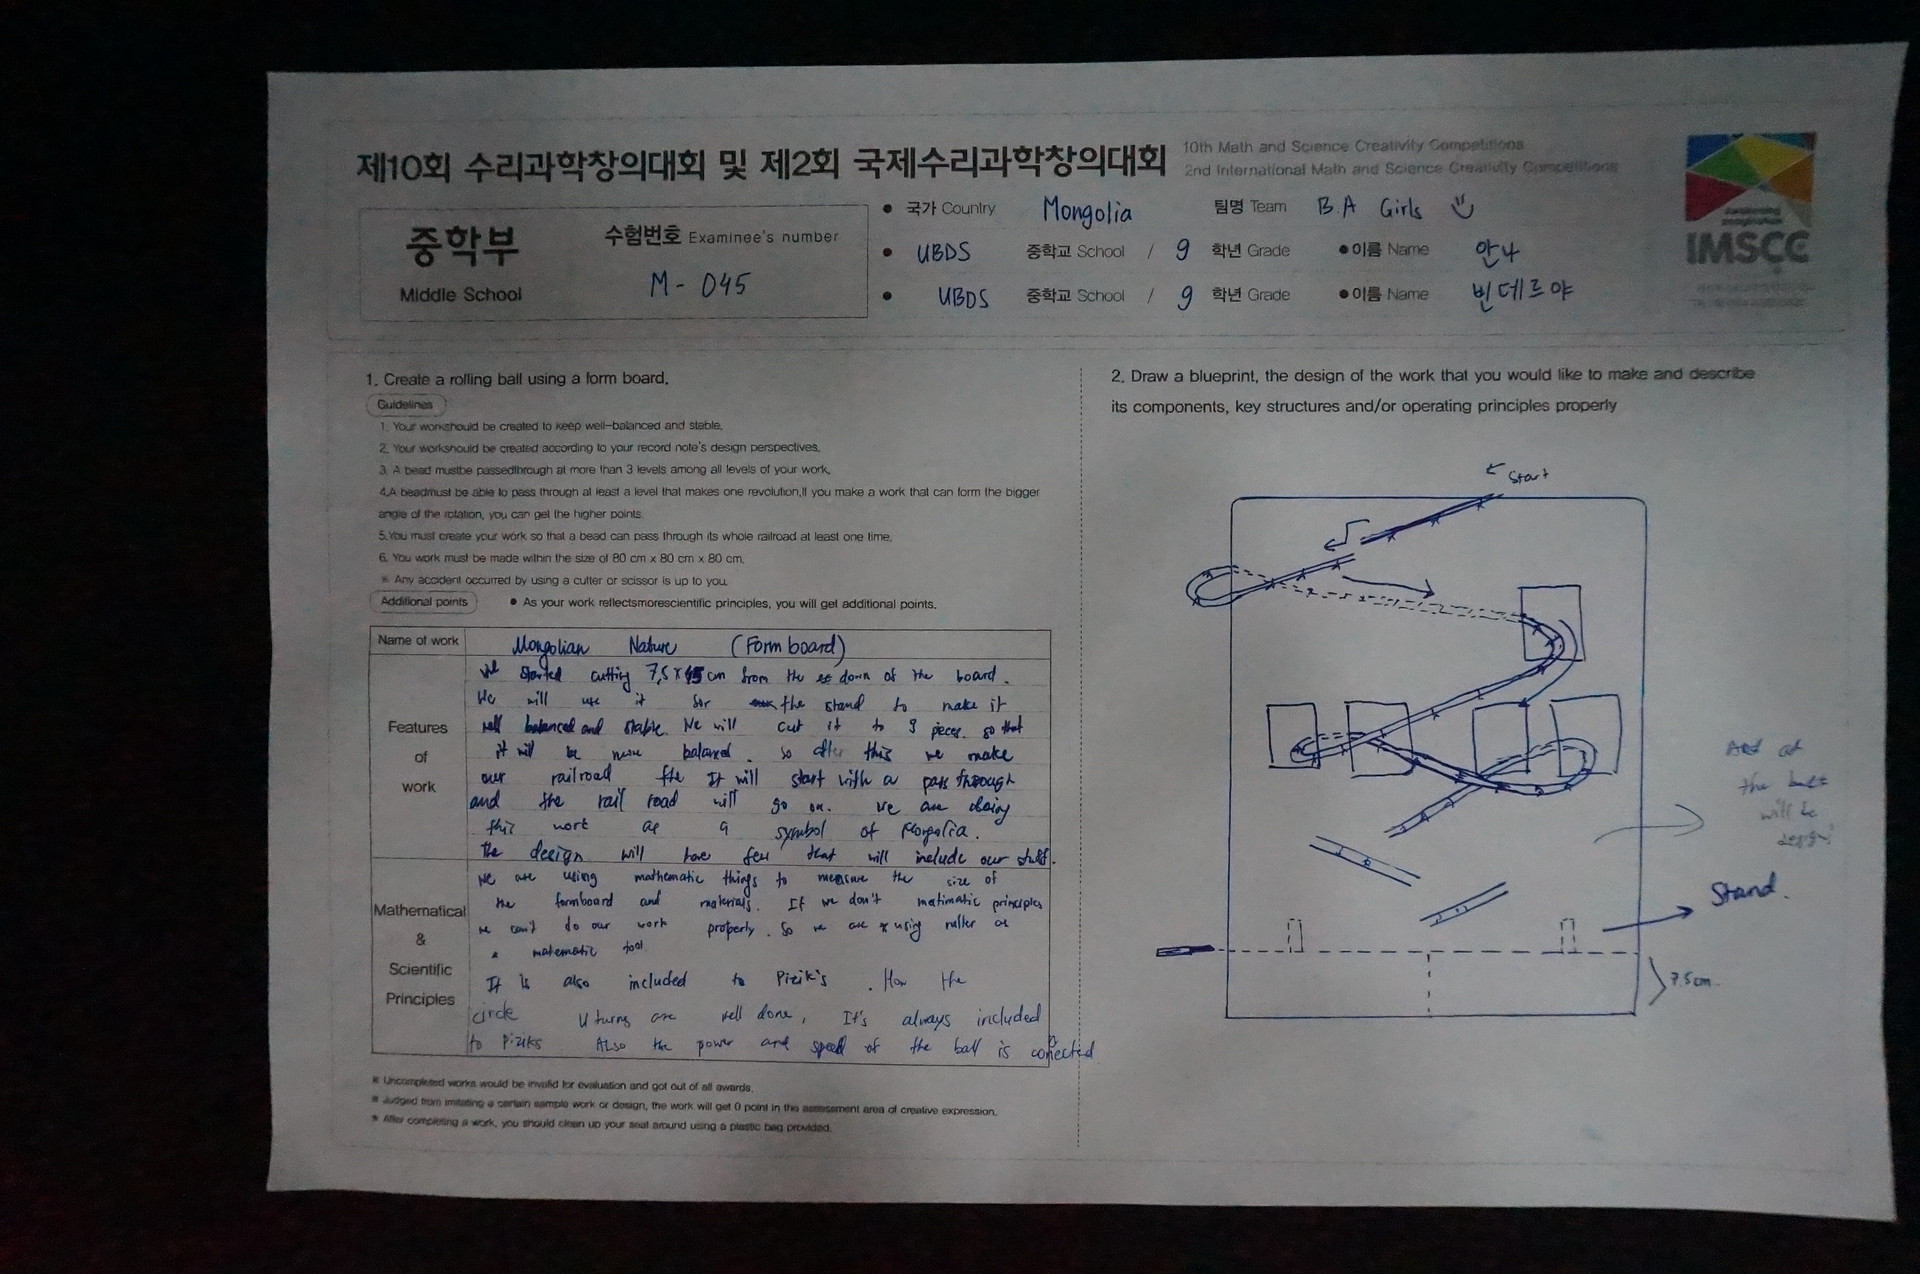 제10회 수리과학창의대회 및 제2회 국제수리과학창의대회
10th Math and Science Creativity Competitions
2nd International Math and Science Creativity Competitions
중학부
Middle School
수험번호 Examinee's number
M - 045
• 국가 Country Mongolia 팀명 Team B.A Girls
• UBDS 중학교 School / 9 학년 Grade •이름 Name 안나
• UBDS 중학교 School / 9 학년 Grade •이름 Name 빈데르야
IMSCC
1. Create a rolling ball using a form board.
Guidelines
1. Your workshould be created to keep well-balanced and stable.
2. Your workshould be created according to your record note's design perspectives.
3. A bead mustbe passedthrough at more than 3 levels among all levels of your work.
4.A beadmust be able to pass through at least a level that makes one revolution,If you make a work that can form the bigger
angle of the rotation, you can get the higher points.
5.You must create your work so that a bead can pass through its whole railroad at least one time.
6. You work must be made within the size of 80 cm x 80 cm x 80 cm.
※ Any accident occurred by using a cutter or scissor is up to you.
Additional points • As your work reflectsmorescientific principles, you will get additional points.
Name of work Mongolian Nature (Form board)
Features
of
work
We started cutting 7,5 x 45 cm from the down of the board.
We will use it for the stand to make it
well balanced and stable. We will cut it to 3 pieces. so that
it will be more balanced. so after this we make
our railroad the It will start with a pass through
and the rail road will go on. we are doing
this work as a symbol of Mongolia.
the design will have few that will include our stuff.
Mathematical
&
Scientific
Principles
We are using mathematic things to measure the size of
the formboard and materials. If we don't matimatic principles
we can't do our work properly. So we are using ruller as
a matematic tool
It is also included to Pizik's. How the
circle U turns are well done, It's always included
to Piziks Also the power and speed of the ball is conected
※ Uncompleted works would be invalid for evaluation and got out of all awards.
※ Judged from imitating a certain sample work or design, the work will get 0 point in the assessment area of creative expression.
※ After completing a work, you should clean up your seat around using a plastic bag provided.
2. Draw a blueprint, the design of the work that you would like to make and describe
its components, key structures and/or operating principles properly
Start
the
will be
Stand.
7.5cm.